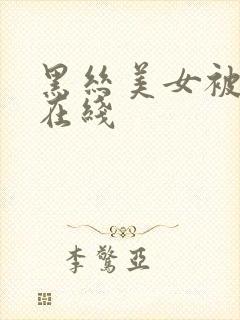 黑丝美女被
在线
李惊亚